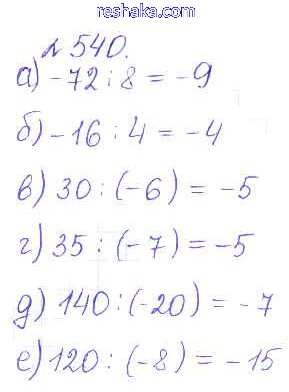 reshaka.com
№ 540.
а) -72 : 8 = -9
б) -16 : 4 = -4
в) 30 : (-6) = -5
г) 35 : (-7) = -5
д) 140 : (-20) = -7
е) 120 : (-8) = -15